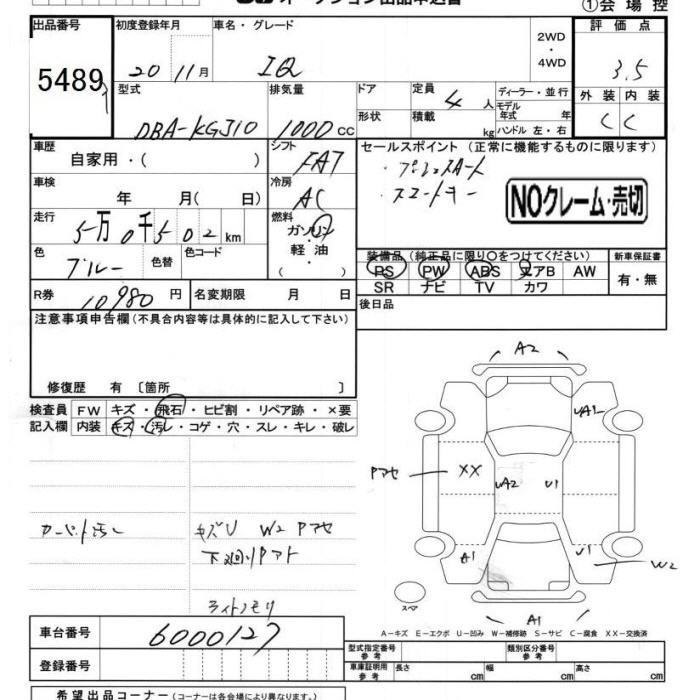 ①会場控
出品番号 初度登録年月 車名・グレード 2WD・4WD 評価点
5489
20 11月 IQ 3.5
型式 排気量 ドア 定員 4人 ディーラー・並行 外装 内装
DBA-KGJ10 1000 CC 形状 積載 kg モデル年式 年 C C
ハンドル 左・右
車歴 自家用・( ) シフト FAT セールスポイント (正常に機能するものに限ります)
・プッシュスタート
・スマートキー
車検 年 月( 日) 冷房 AC
NOクレーム・売切
走行 5万0千502km 燃料 ガソリン・軽油・( )
色 ブルー 色替 色コード
装備品 (純正品に限り○をつけてください) 新車保証書
PS PW ABS エアB AW 有・無
SR ナビ TV カワ
R券 10,980円 名変期限 月 日 後日品
注意事項申告欄(不具合内容等は具体的に記入して下さい)
修復歴 有 〔箇所 〕
検査員 FW キズ・飛石・ヒビ割・リペア跡・×要
記入欄 内装 キズ・汚レ・コゲ・穴・スレ・キレ・破レ
A2
UA1
Pマセ XX UA2 U1
A1 U1 W2
カーペット汚れ キズU W2 Pマセ
下廻りPアト
ライトクモリ
スペア
A1
A-キズ E-エクボ U-凹み W-補修跡 S-サビ C-腐食 XX-交換済
車台番号 6000127
型式指定番号 参考 類別区分番号 参考
登録番号 車庫証明用 参考 長さ cm 幅 cm 高さ cm
希望出品コーナー (コーナーは各会場により異なります。)